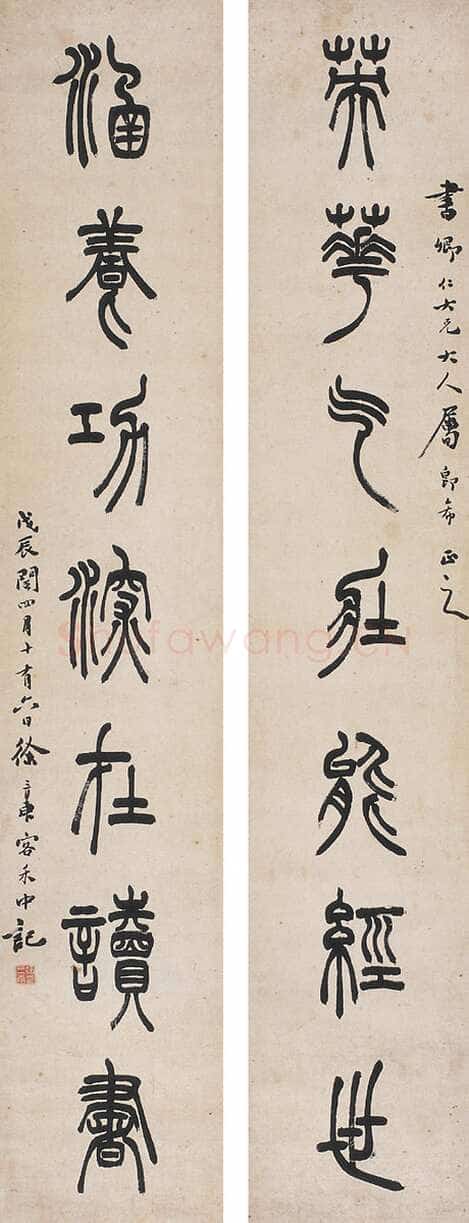 書卿仁大兄大人屬即希正之
英華气壯能經世
涵養功深在讀書
戊辰閏四月十有六日徐三庚客禾中記
Shufawang.CN